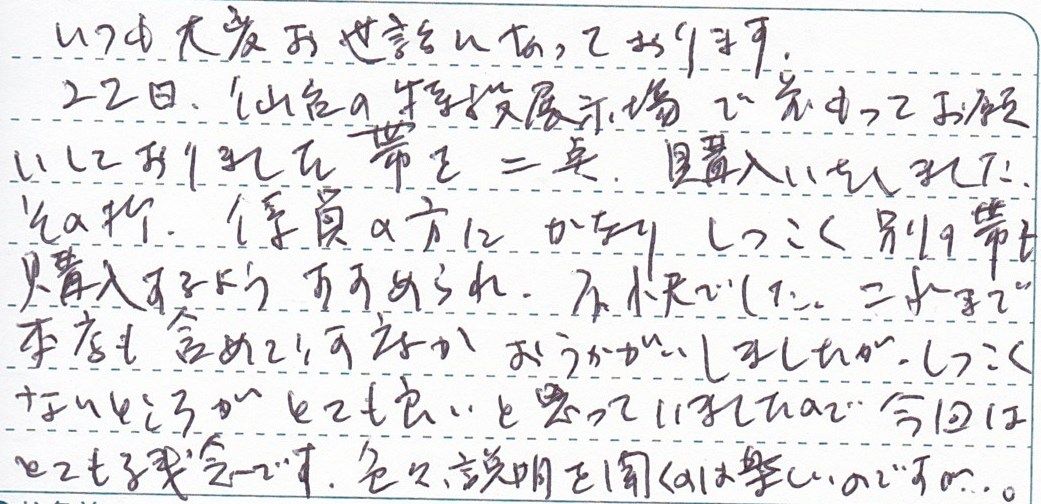 いつも大変お世話になっております。
22日、仙台の特設展示場で前もってお願
いしておりました帯を二点、購入いたしました。
その折、係員の方にかなりしつこく別の帯を
購入するようすすめられ、不快でした。これまで
本店も含めて何度かおうかがいしましたが、しつこく
ないところがとても良いと思っていましたので今回は
とても残念です。色々説明を聞くのは楽しいのですが…。